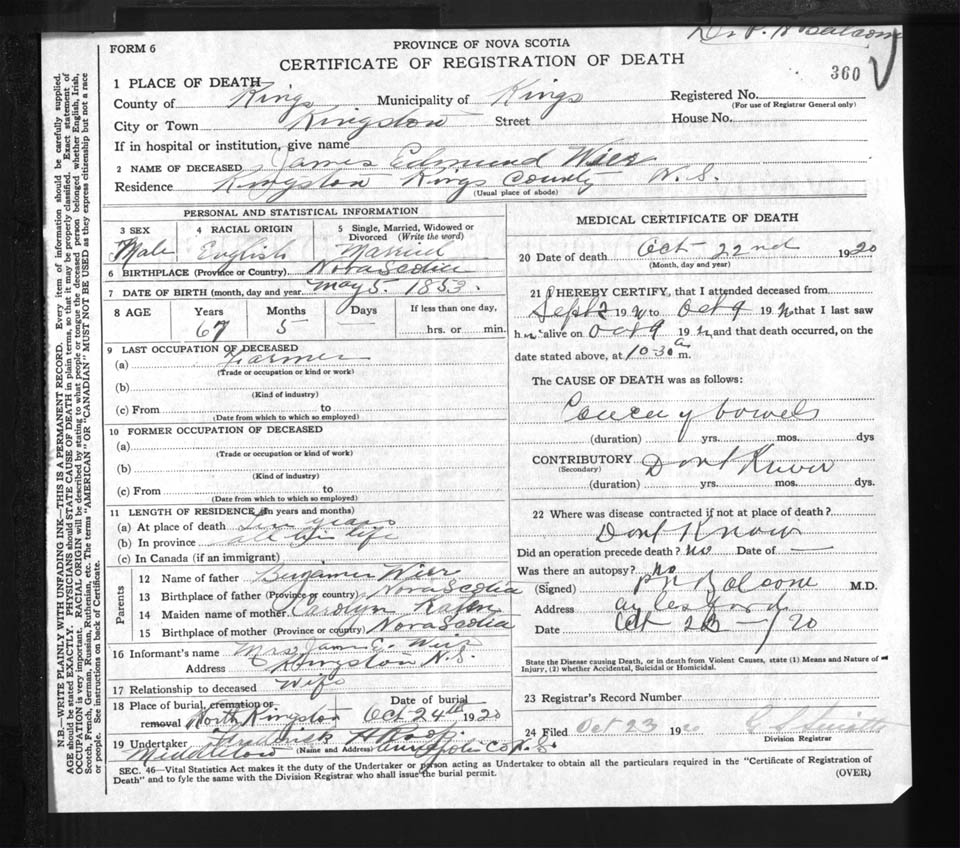 FORM 6
PROVINCE OF NOVA SCOTIA
CERTIFICATE OF REGISTRATION OF DEATH
360
1 PLACE OF DEATH
County of Kings Municipality of Kings Registered No.
(For use of Registrar General only)
City or Town Kingston Street House No.
If in hospital or institution, give name
2 NAME OF DECEASED James Edmund Wier
Residence Kingston Kings County N. S.
(Usual place of abode)
PERSONAL AND STATISTICAL INFORMATION
3 SEX 4 RACIAL ORIGIN 5 Single, Married, Widowed or
Divorced (Write the word)
Male English Married
6 BIRTHPLACE (Province or Country) Nova Scotia
7 DATE OF BIRTH (month, day and year May 5. 1853.
8 AGE Years Months Days If less than one day,
67 5 hrs. or min.
9 LAST OCCUPATION OF DECEASED
(a) Farmer
(Trade or occupation or kind or work)
(b)
(Kind of industry)
(c) From to
(Date from which to which so employed)
10 FORMER OCCUPATION OF DECEASED
(a)
(Trade or occupation or kind of work)
(b)
(Kind of industry)
(c) From to
(Date from which to which so employed)
11 LENGTH OF RESIDENCE (in years and months)
(a) At place of death Ten years
(b) In province all his life
(c) In Canada (if an immigrant)
Parents
12 Name of father Benjamin Wier
13 Birthplace of father (Province or country) Nova Scotia
14 Maiden name of mother Carolyn
15 Birthplace of mother (Province or country) Nova Scotia
16 Informant's name Mrs James E. Wier
Address Kingston N.S.
17 Relationship to deceased Wife
18 Place of burial, cremation or Date of burial
removal North Kingston Oct 24th 1920
19 Undertaker Frederick
(Name and Address)
Middleton Annapolis Co N.S.
MEDICAL CERTIFICATE OF DEATH
20 Date of death Oct 22nd 1920
(Month, day and year)
21 I HEREBY CERTIFY, that I attended deceased from
Sept 2 19 20 to Oct 9 19 20 that I last saw
him alive on Oct 9 19 20 and that death occurred, on the
date stated above, at 10 30 a m.
The CAUSE OF DEATH was as follows:
Cancer of bowels
(duration) yrs. mos. dys
CONTRIBUTORY Dont Know
(Secondary)
(duration) yrs. mos. dys.
22 Where was disease contracted if not at place of death?
Dont Know
Did an operation precede death? No Date of —
Was there an autopsy? No
(Signed) Balcom M.D.
Address Aylesford
Date Oct 23 — /20
State the Disease causing Death, or in death from Violent Causes, state (1) Means and Nature of
Injury, (2) whether Accidental, Suicidal or Homicidal.
23 Registrar's Record Number
24 Filed Oct 23 1920
Division Registrar
SEC. 46—Vital Statistics Act makes it the duty of the Undertaker or person acting as Undertaker to obtain all the particulars required in the "Certificate of Registration of
Death" and to fyle the same with the Division Registrar who shall issue the burial permit.
(OVER)
N.B.—WRITE PLAINLY WITH UNFADING INK—THIS IS A PERMANENT RECORD. Every item of information should be carefully supplied.
AGE should be stated EXACTLY. PHYSICIANS should STATE CAUSE OF DEATH in plain terms, so that it may be properly classified. Exact statement of
OCCUPATION is very important. RACIAL ORIGIN will be described by stating to what people or tongue the deceased person belonged whether English, Irish,
Scotch, French, German, Russian, Ruthenian, etc. The terms "AMERICAN" OR "CANADIAN" MUST NOT BE USED as they express citizenship but not a race
or people. See instructions on back of Certificate.